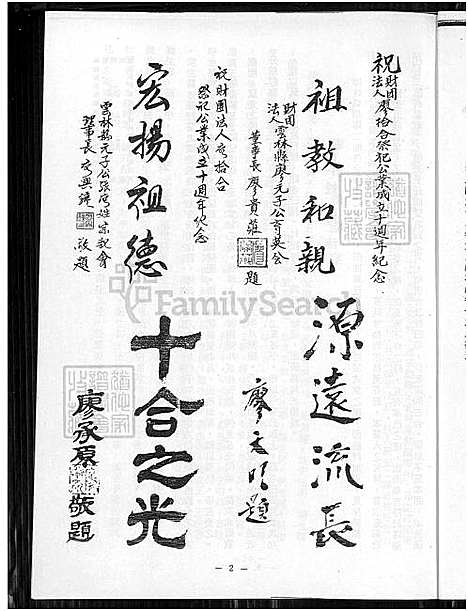 祝財團法人廖拾合祭祀公業成立十週年紀念
祖教和親
財團法人雲林縣廖元子公育英會
董事長廖貴莊 題
祝財團法人廖拾合祭祀公業成立十週年紀念
宏揚祖德
雲林縣元子公張廖姓宗親會
理事長廖興 敬題
源遠流長
廖 題
十合之光
廖承原 敬題
FamilySearch
- 2 -